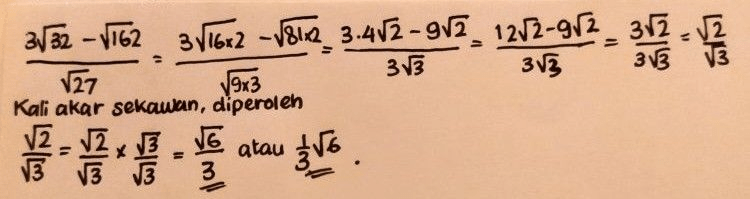 (3√32 − √162)/√27 = (3√(16×2) − √(81×2))/√(9×3) = (3.4√2 − 9√2)/(3√3) = (12√2 − 9√2)/(3√3) = 3√2/(3√3) = √2/√3
Kali akar sekawan, diperoleh
√2/√3 = √2/√3 × √3/√3 = √6/3 atau 1/3 √6 .